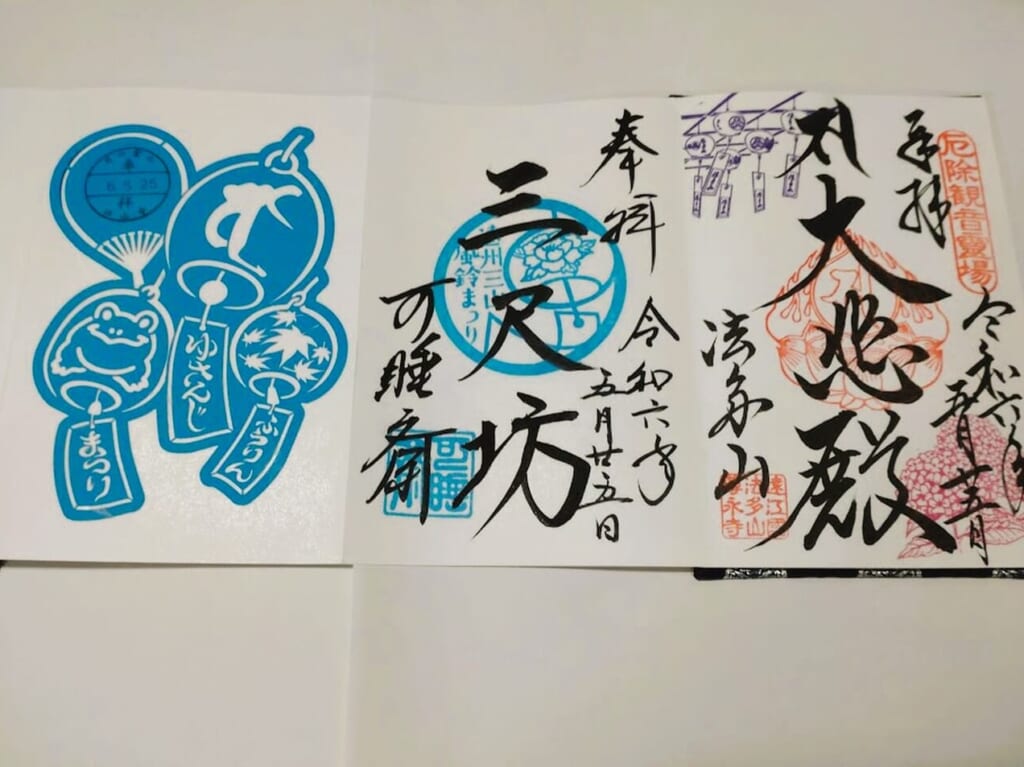 厄除観音霊場
奉拝
令和六年
五月廿五日
大悲殿
法多山
遠江國
法多山
尊永寺
奉拝
令和六年
五月廿五日
三尺坊
遠州三山
風鈴まつり
可睡斎
奉
6.5.25
拝
ゆさんじ
ふうりん
まつり